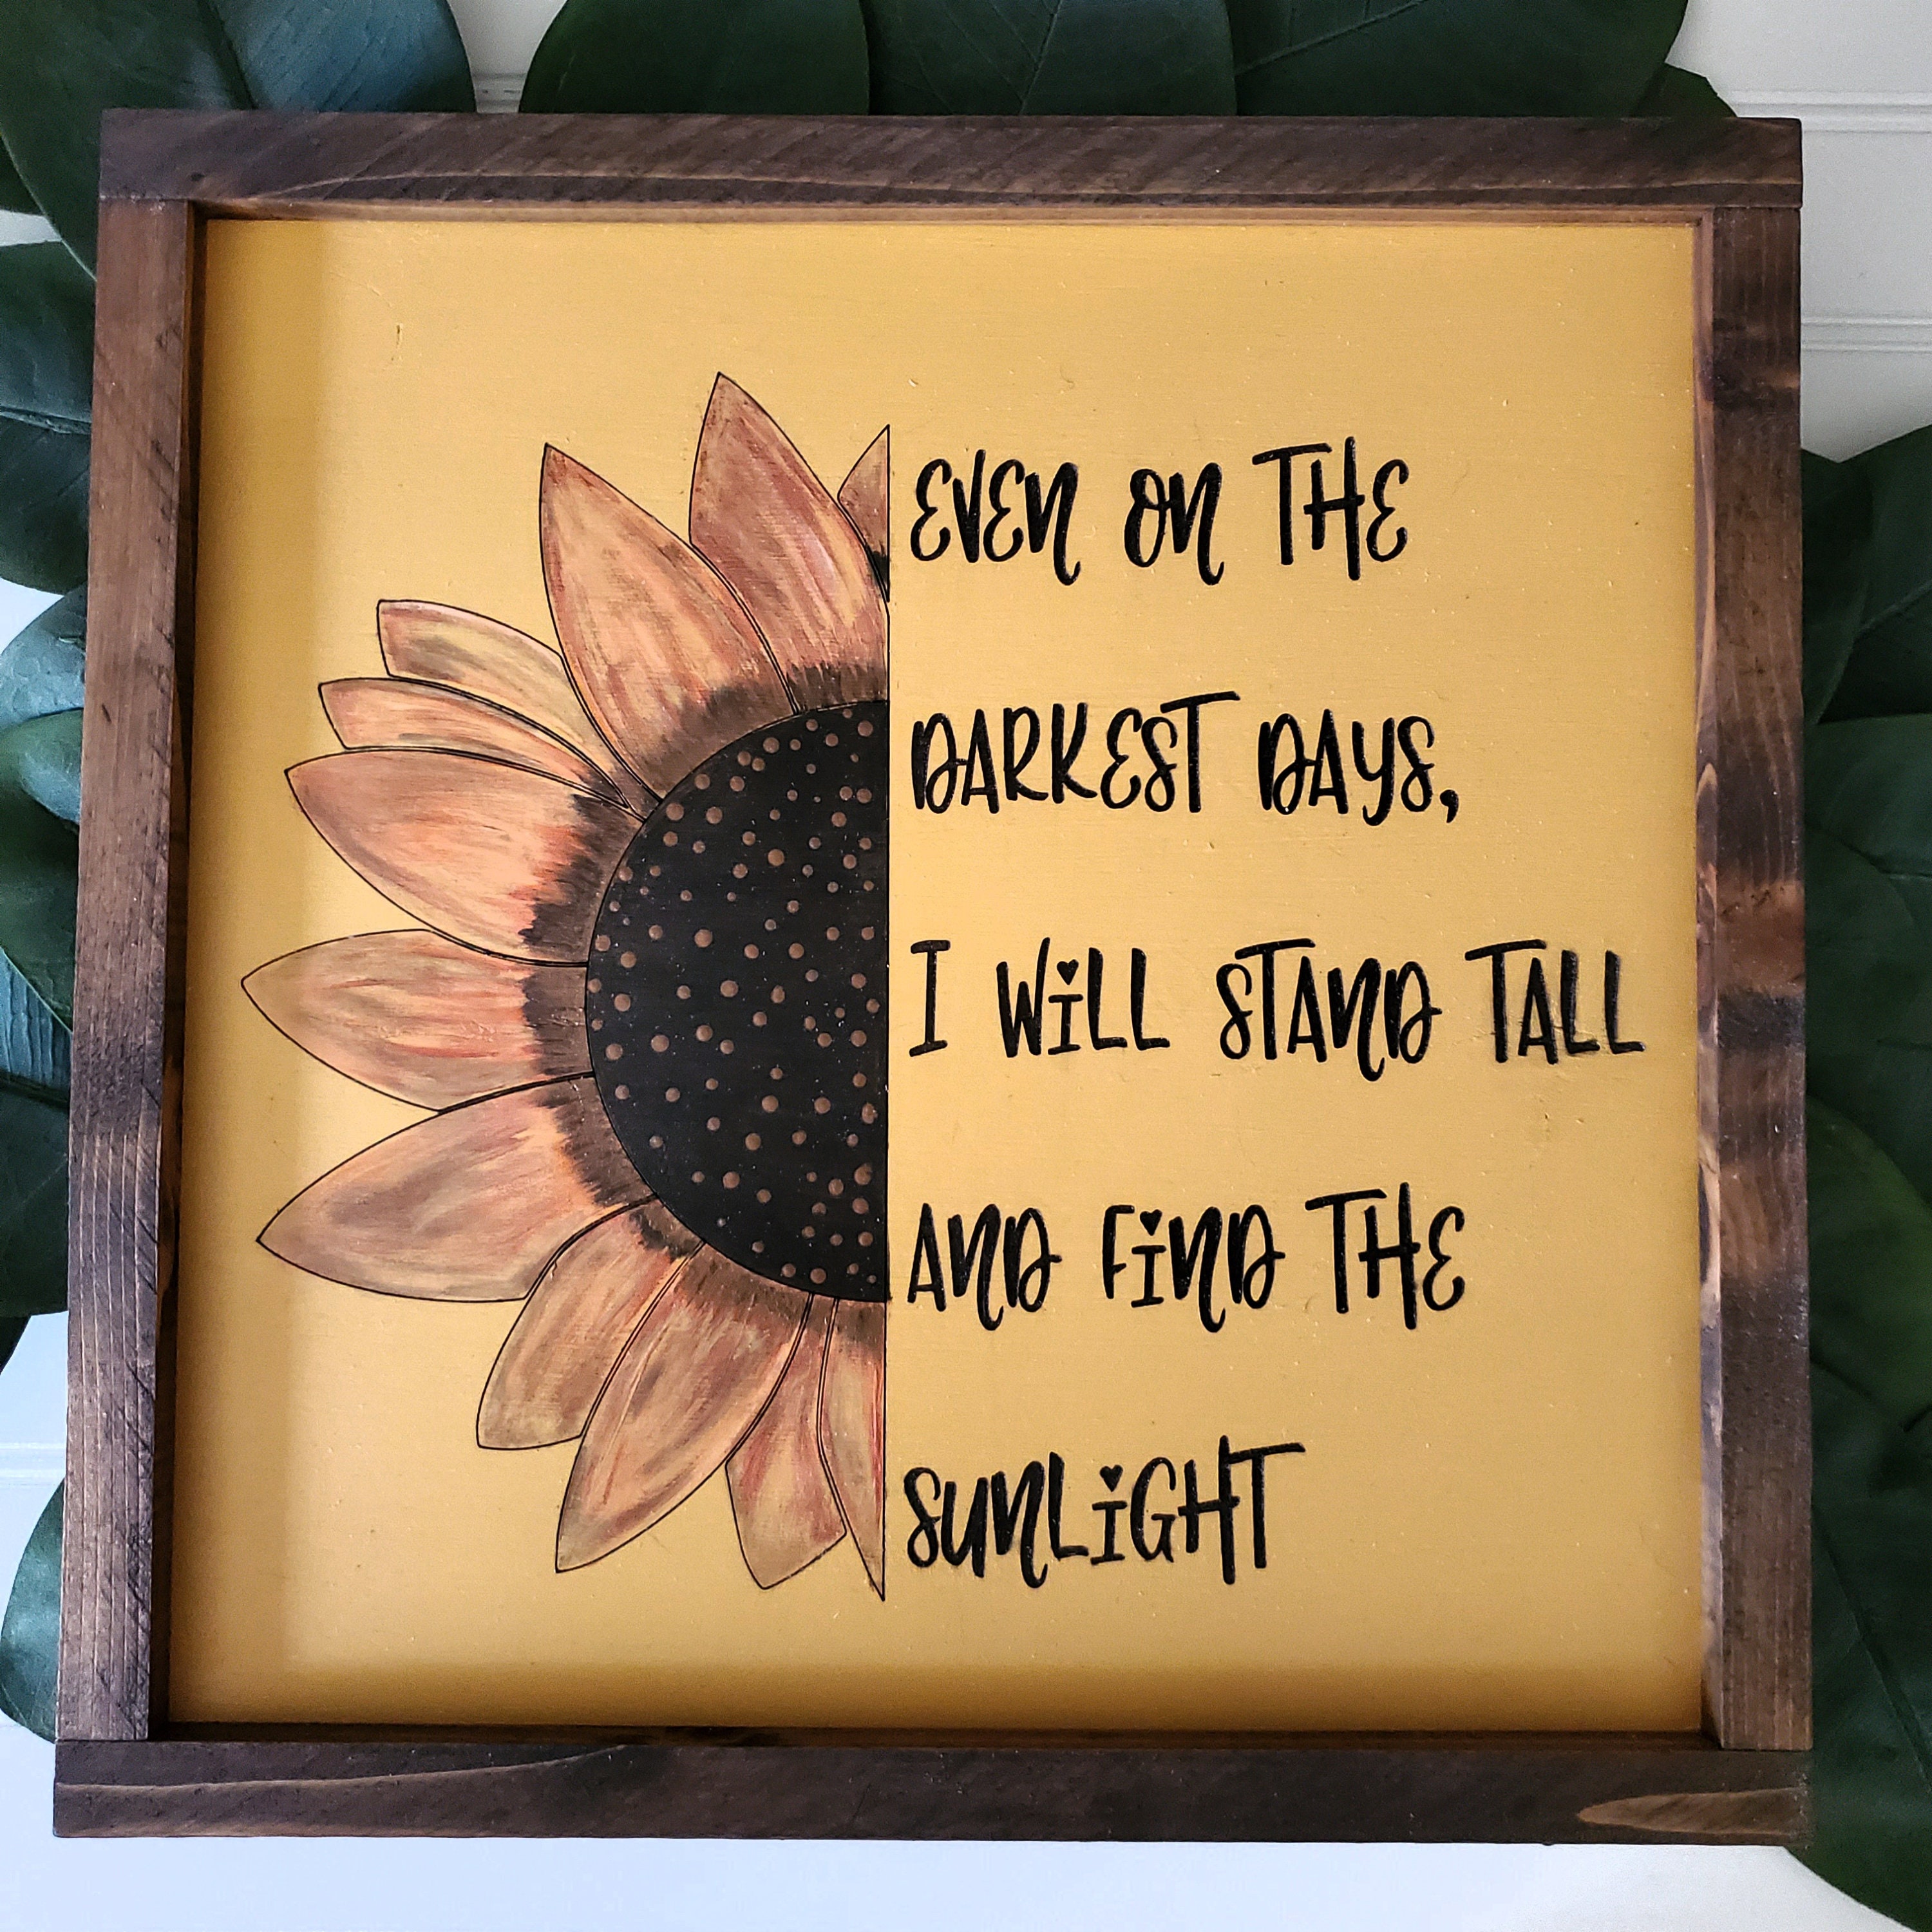 EVEN ON THE
DARKEST DAYS,
I WiLL STAND TALL
AND FiND THE
SUNLiGHT